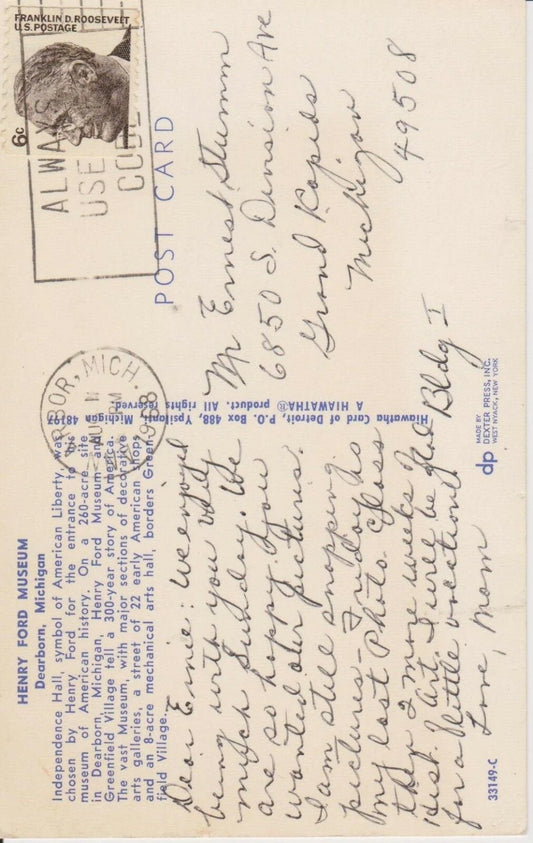 HENRY FORD MUSEUM
Dearborn, Michigan
Independence Hall, symbol of American Liberty, was
chosen by Henry Ford for the entrance to his
museum of American history. On a 260-acre site
in Dearborn, Michigan, Henry Ford Museum and
Greenfield Village tell a 300-year story of America.
The vast Museum, with major sections of decorative
arts galleries, a street of 22 early American shops
and an 8-acre mechanical arts hall, borders Green-
field Village.
Dear Ernie: We enjoyed
being with you very
much Sunday. We
are so happy you
wanted our pictures.
I am still snapping
pictures - Friday is
my last Photo Class
then 2 more weeks of
Hist. of Art. I will be glad
for a little vacation.
Love, Mom
33149-C
POST CARD
FRANKLIN D. ROOSEVELT
U.S. POSTAGE
6c
ALWAYS
USE
CODE
ARBOR, MICH.
AUG
PM
1968
Mr Ernest Stumm
6850 S. Division Ave
Grand Rapids
Michigan
49508
Bldg I
Hiawatha Card of Detroit, P.O. Box 488, Ypsilanti, Michigan 48197
A HIAWATHA® product. All rights reserved.
dp
MADE BY
DEXTER PRESS, INC.
WEST NYACK, NEW YORK